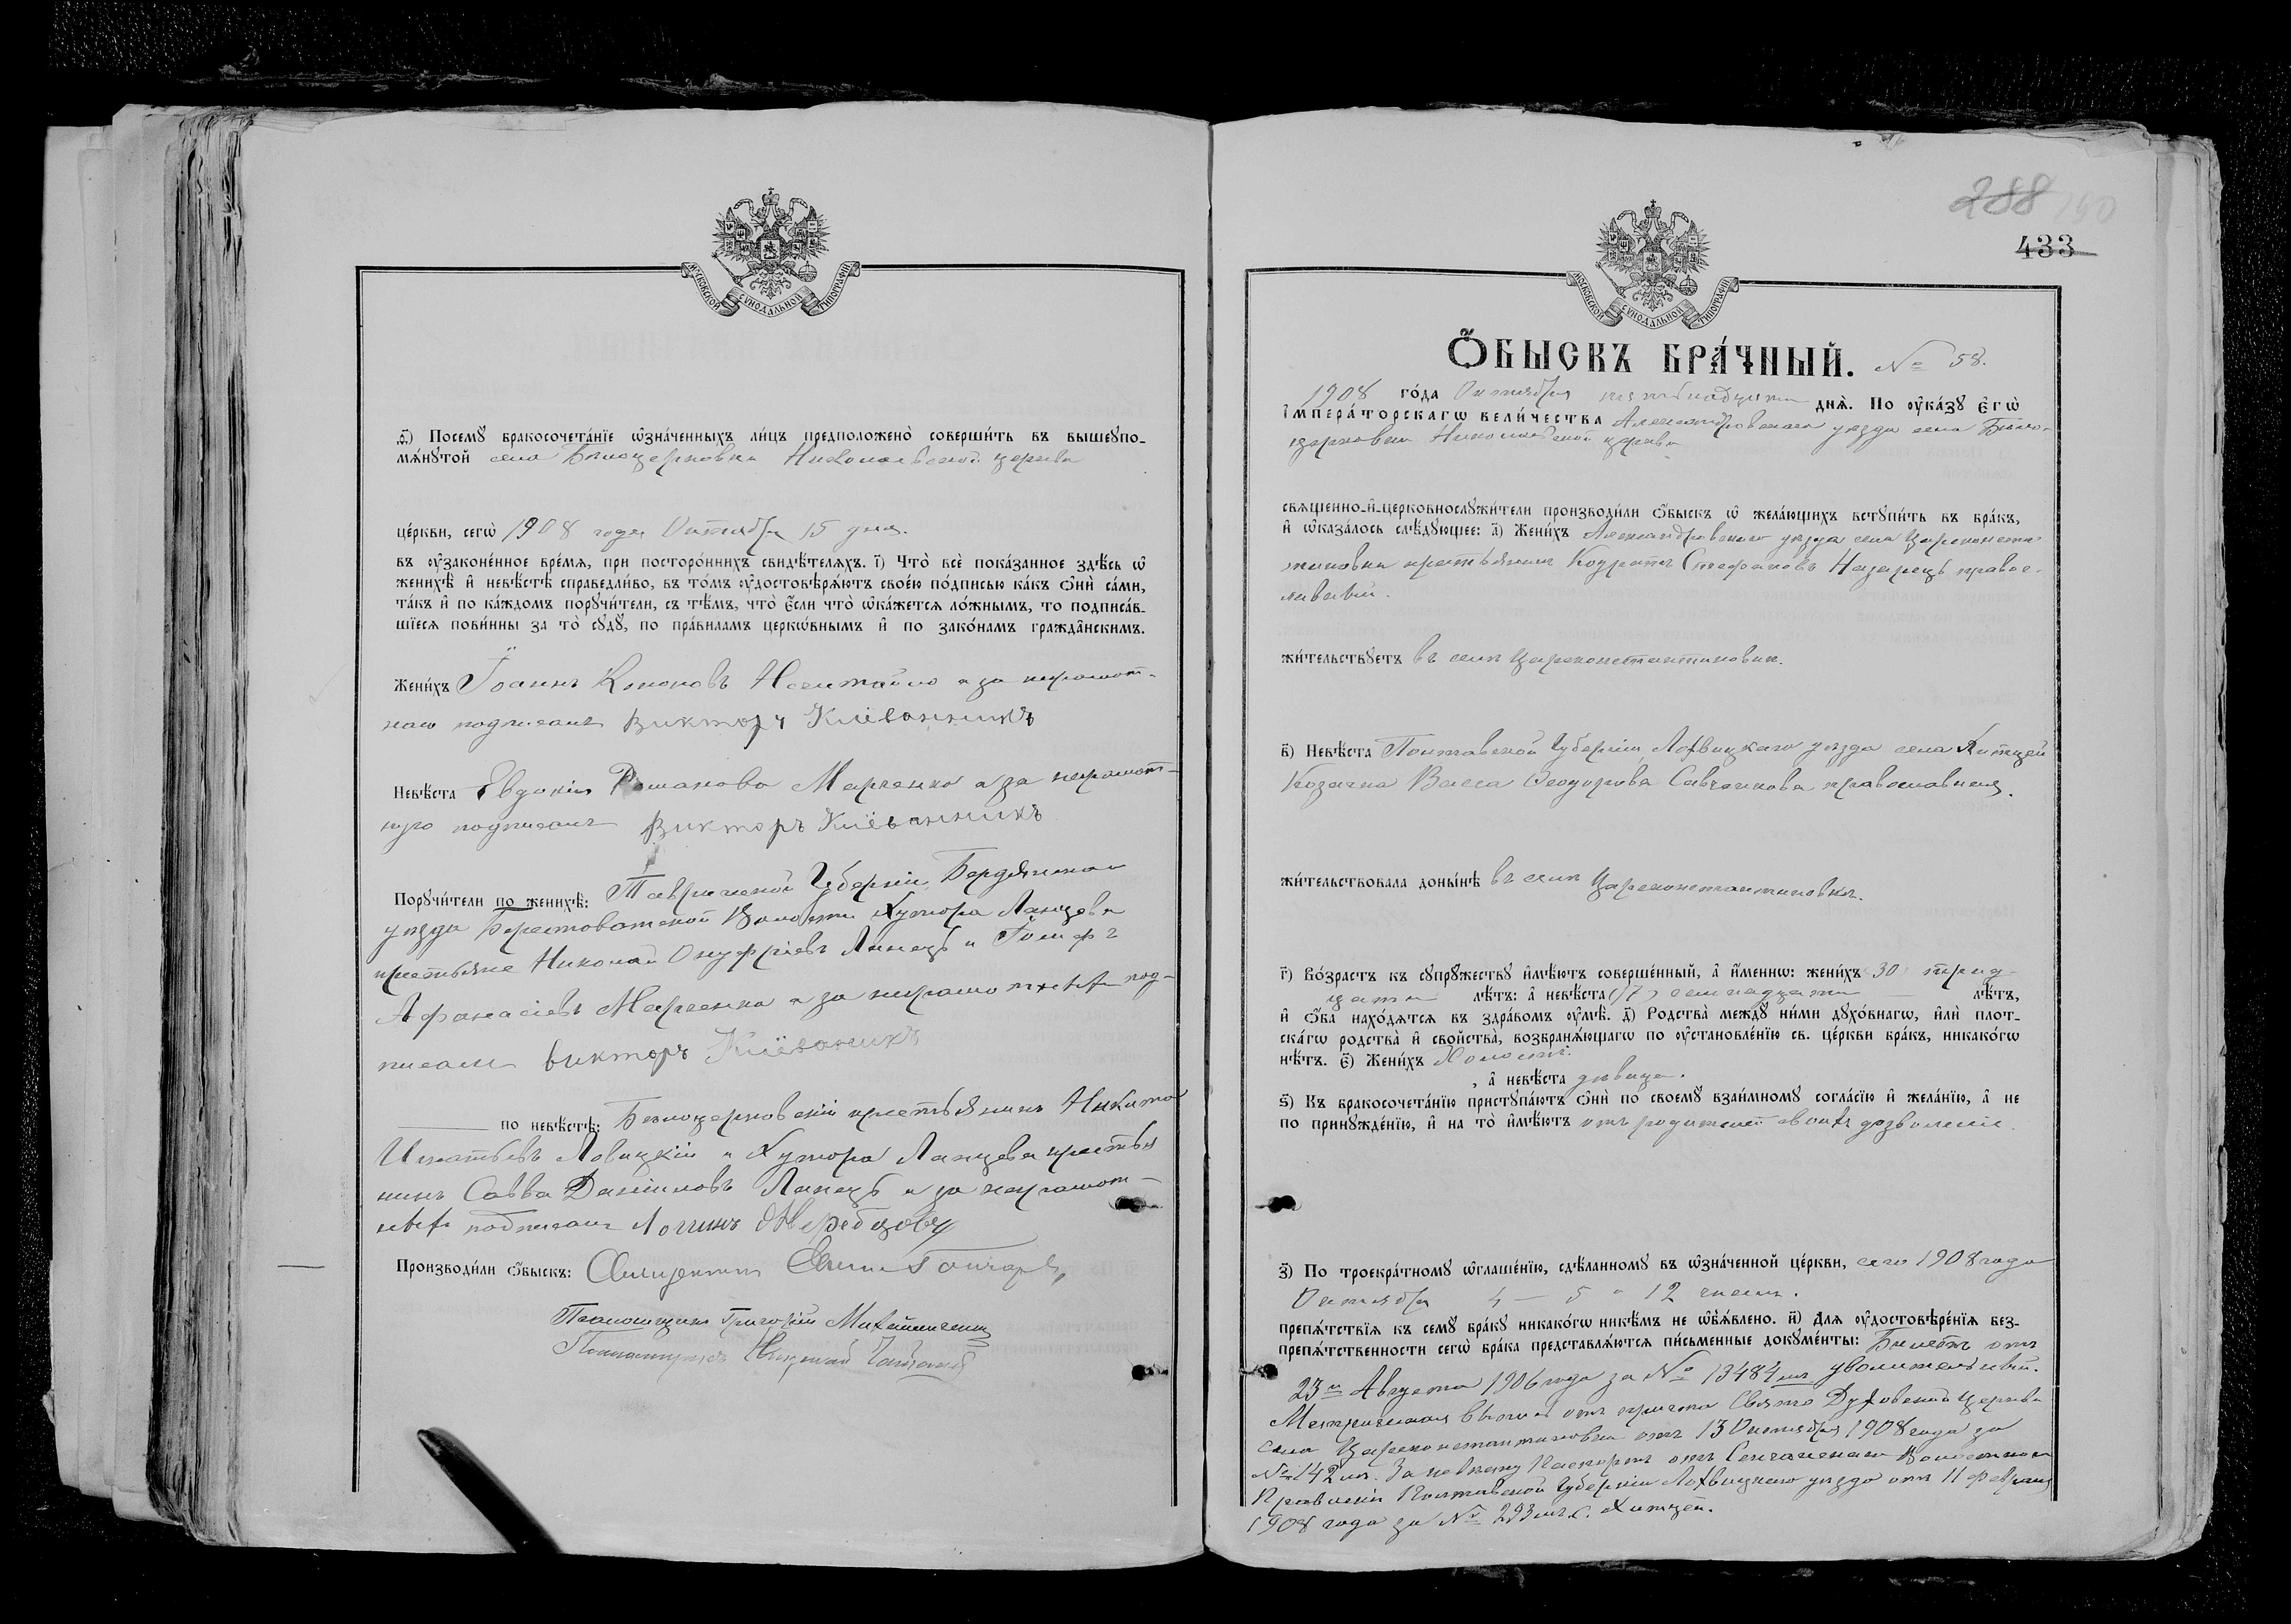 МОСКОВСКОЙ СУНОДАЛЬНОЙ ТИПОГРАФІИ
ѳ҃) Посемꙋ̀ бракосочета́нїе ѡ҆зна́ченныхъ ли́цъ предположено̀ соверши́ть въ вышеупо-
мѧ́нутой села Бѣлоцерковки Николаевской церкви
це́ркви, сегѡ̀ 1908 года Октября 15 дня.
въ ᲂу҆зако́ненное вре́мѧ, при посторо́ннихъ свидѣ́телѧхъ. і҃) Что̀ всѐ пока́занное здѣ́сь ѡ҆
женихѣ̀ и҆ невѣ́стѣ справедли́во, въ то́мъ ᲂу҆достовѣрѧ́ютъ свое́ю по́дписью ка́къ ѻ҆нѝ са́ми,
та́къ и҆ по ка́ждомъ порꙋчи́тели, съ тѣ́мъ, что̀ є҆́сли что̀ ѡ҆ка́жетсѧ ло́жнымъ, то подписа́в-
шїесѧ пови́нны за то̀ сꙋдꙋ̀, по пра́виламъ церкѡ́внымъ и҆ по зако́намъ гражда́нскимъ.
Жени́хъ Іоаннъ Кононовъ Нечитайло а за неграмот-
наго подписалъ Викторъ Кіїванникъ
Невѣ́ста Евдокія Романова Марченко а за неграмот-
ную подписалъ Викторъ Кіїванникъ
Порꙋчи́тели по женихѣ̀: Таврической Губерніи Бердянскаго
уѣзда Берестоватской Волости Хутора Ланцева
крестьяне Николай Онуфріевъ Линецъ и Іосифъ
Афанасіевъ Марченко а за неграмотныхъ под-
писалъ Викторъ Кіїваникъ
по невѣ́стѣ: Бѣлоцерковскій крестьянинъ Никита
Игнатьевъ Ловицкій и Хутора Ланцева крестья
нинъ Савва Даниловъ Линецъ а за неграмот-
ныхъ подписалъ Логинъ Жеребцовъ
Производи́ли ѻ҆́быскъ: Священникъ
Псаломщикъ Григорій Михайличенко
Псаломщикъ Николай
288 190
433
МОСКОВСКОЙ СУНОДАЛЬНОЙ ТИПОГРАФІИ
Ѻ҆БЫСКЪ БРА́ЧНЫЙ. № 58.
1908 го́да Октября пятнадцати днѧ̀. По ᲂу҆ка́зꙋ Є҆гѡ̀
И҆мпера́торскагѡ вели́чества Александровскаго уѣзда села Бѣло-
церковки Николаевской церкви
свѧще́нно-и҆-церковнослꙋжи́тели производи́ли ѻ҆́быскъ ѡ҆ жела́ющихъ встꙋпи́ть въ бра́къ,
и҆ ѡ҆каза́лось слѣ́дꙋющее: а҃) Жени́хъ Александровскаго уѣзда села Цареконстан-
тиновки крестьянинъ Кодратъ Стефановъ Назарецъ правос-
лавный.
жи́тельствꙋетъ въ селѣ Цареконстантиновкѣ.
в҃) Невѣ́ста Полтавской Губерніи, Лохвицкаго уѣзда села Хитцей
Козачка Васса Ѳеодорова Савченкова православная.
жи́тельствовала доны́нѣ въ селѣ Цареконстантиновкѣ.
г҃) Во́зрастъ къ сꙋпрꙋ́жествꙋ и҆мѣ́ютъ соверше́нный, а҆ и҆́меннѡ: жени́хъ 30 трид-
цати лѣ́тъ: а҆ невѣ́ста (17) семнадцати лѣ́тъ,
и҆ ѻ҆́ба нахо́дѧтсѧ въ здра́вомъ ᲂу҆мѣ̀. д҃) Родства̀ междꙋ̀ ни́ми дꙋхо́внагѡ, и҆лѝ плот-
ска́гѡ родства̀ и҆ сво́йства̀, возбранѧ́ющагѡ по ᲂу҆становле́нїю св. це́ркви бра́къ, никако́гѡ
нѣ́тъ. є҃) Жени́хъ Холостъ.
, а҆ невѣ́ста дѣвица.
ѕ҃) Къ бракосочета́нїю пристꙋпа́ютъ ѻ҆нѝ по своемꙋ̀ взаи́мномꙋ согла́сїю и҆ жела́нїю, а҆ не
по принꙋжде́нїю, и҆ на то̀ и҆мѣ́ютъ отъ родителей своихъ дозволеніе.
з҃) По троекра́тномꙋ ѡ҆глаше́нїю, сдѣ́ланномꙋ въ ѡ҆зна́ченной це́ркви, сего 1908 года
Октября 4 — 5 и 12 чиселъ.
препѧ́тствїѧ къ семꙋ̀ бра́кꙋ никако́гѡ никѣ́мъ не ѡ҆б̾ѧ́влено. и҃) Длѧ ᲂу҆достовѣре́нїѧ без-
препѧ́тственности сегѡ̀ бра́ка представлѧ́ютсѧ пи́сьменные докꙋме́нты: Билетъ отъ
23го Августа 1906 года за № 13484мъ увольнительный.
Метрическая выпись отъ причта Свято Духовской Церкви
села Цареконстантиновки отъ 13 Октября 1908 года за
№ 142мъ. За невѣсту Паспортъ отъ Сенчанскаго Волостнаго
Правленія Полтавской Губерніи Лохвицкаго уѣзда отъ 11 Февраля
1908 года за № 293мъ с. Хитцей.